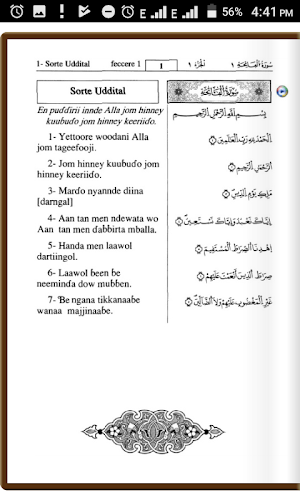 56% 4:41 PM
1- Sorte Uddital feccere 1 1 الجزء ١ سورة الفاتحة ١
Sorte Uddital
En puɗɗirii innde Alla jom hinney
kuubuɗo jom hinney keeriiɗo.
1- Yettoore woodani Alla
jom tageefooji.
2- Jom hinney kuubuɗo jom
hinney keeriiɗo.
3- Marɗo nyannde diina
[darngal]
4- Aan tan men ndewata wo
Aan tan men ɗabbirta mballa.
5- Handa men laawol
dartiingol.
6- Laawol been be
neeminɗa dow mubben.
7- Ɓe ngana tikkanaabe
wanaa majjinaabe.
سورة الفاتحة
بسم الله الرحمن الرحيم
الحمد لله رب العلمين ①
الرحمن الرحيم ②
ملك يوم الدين ③
إياك نعبد وإياك نستعين ④
اهدنا الصراط المستقيم ⑤
صراط الذين أنعمت عليهم ⑥
غير المغضوب عليهم ولا الضالين ⑦